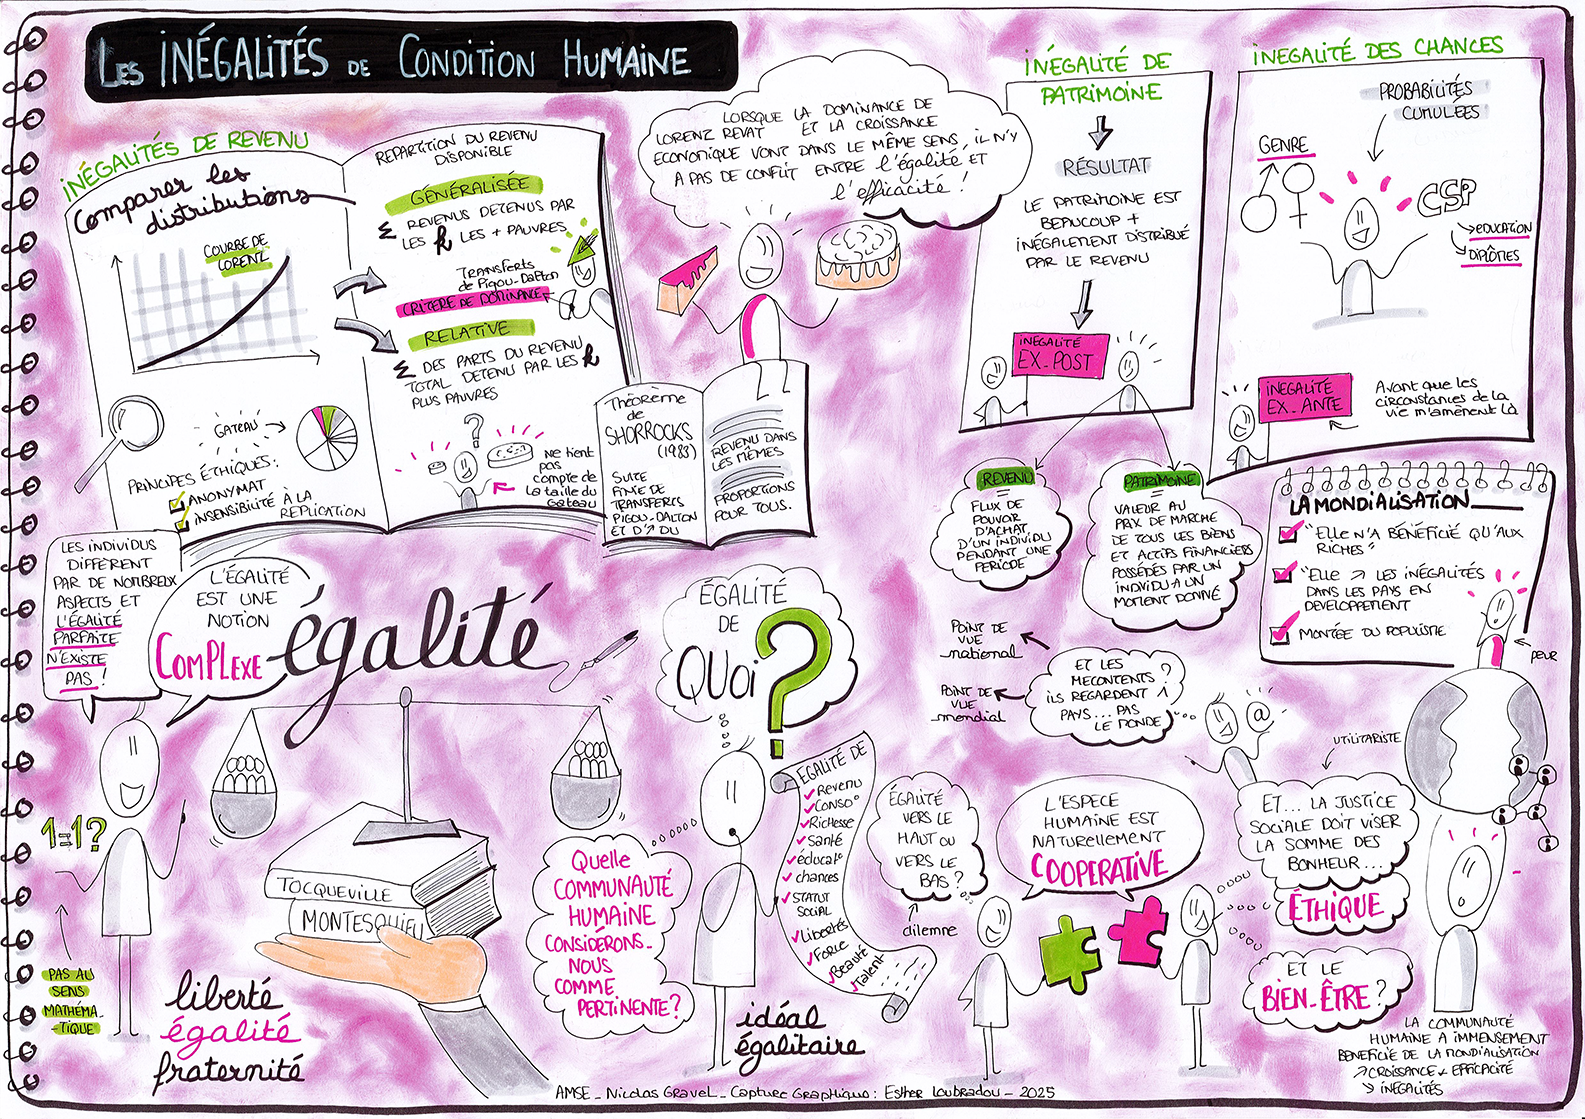 LES INÉGALITÉS DE CONDITION HUMAINE
INÉGALITÉS DE REVENU
Comparer les
distributions
COURBE DE
LORENZ
GATEAU
PRINCIPES ÉTHIQUES:
ANONYMAT
INSENSIBILITÉ À LA
RÉPLICATION
REPARTITION DU REVENU
DISPONIBLE
GÉNÉRALISÉE
Σ REVENUS DETENUS PAR
LES k LES + PAUVRES
TRANSFERTS
de Pigou-Dalton
CRITÈRE DE DOMINANCE
RELATIVE
Σ DES PARTS DU REVENU
TOTAL DETENU PAR LES k
PLUS PAUVRES
?
ne tient
pas
compte de
la taille du
Gateau
THÉORÈME
de
SHORROCKS
(1983)
SUITE
FINIE DE
TRANSFERTS
PIGOU-DALTON
ET D'↗ DU
REVENU DANS
LES MÊMES
PROPORTIONS
POUR TOUS.
LORSQUE LA DOMINANCE DE
LORENZ REVAT ET LA CROISSANCE
ECONOMIQUE VONT DANS LE MÊME SENS, IL N'Y
A PAS DE CONFLIT ENTRE l'égalité ET
l'efficacité !
INÉGALITÉ DE
PATRIMOINE
RÉSULTAT
LE PATRIMOINE EST
BEAUCOUP +
INÉGALEMENT DISTRIBUÉ
PAR LE REVENU
INÉGALITÉ
EX-POST
REVENU
=
FLUX DE
POUVOIR
D'ACHAT
D'UN INDIVIDU
PENDANT UNE
PERIODE
PATRIMOINE
=
VALEUR AU
PRIX DE MARCHE
DE TOUS LES BIENS
ET ACTIFS FINANCIERS
POSSÉDÉS PAR UN
INDIVIDU A UN
MOMENT DONNÉ
INEGALITÉ DES CHANCES
PROBABILITÉS
CUMULÉES
GENRE
CSP
EDUCATION
DIPLÔMES
INÉGALITÉ
EX-ANTE
Avant que les
circonstances de la
vie m'amènent là
LA MONDIALISATION
"ELLE N'A BÉNÉFICIÉ QU'AUX
RICHES"
"ELLE ↗ LES INÉGALITÉS
DANS LES PAYS EN
DEVELOPPEMENT
MONTÉE DU POPULISME
PEUR
LES INDIVIDUS
DIFFÈRENT
PAR DE NOMBREUX
ASPECTS ET
L'ÉGALITÉ
PARFAITE
N'EXISTE
PAS !
L'ÉGALITÉ
EST UNE
NOTION
COMPLEXE
égalité
1=1?
PAS AU
SENS
MATHÉMA-
-TIQUE
TOCQUEVILLE
MONTESQUIEU
liberté
égalité
fraternité
ÉGALITÉ
DE
QUOI ?
Quelle
COMMUNAUTÉ
HUMAINE
CONSIDÉRONS-
NOUS
COMME
PERTINENTE?
EGALITÉ DE
Revenu
Conso°
Richesse
santé
éducat°
chances
STATUT
SOCIAL
Libertés
Force
Beauté
Talent
idéal
égalitaire
ÉGALITÉ
VERS LE
HAUT OU
VERS LE
BAS ?
dilemne
POINT DE
VUE
national
POINT DE
VUE
mondial
ET LES
MECONTENTS ?
ILS REGARDENT 1
PAYS... PAS
LE MONDE
@
L'ESPECE
HUMAINE EST
NATURELLEMENT
COOPERATIVE
UTILITARISTE
ET... LA JUSTICE
SOCIALE DOIT VISER
LA SOMME DES
BONHEUR...
ÉTHIQUE
ET LE
BIEN-ÊTRE ?
LA COMMUNAUTÉ
HUMAINE A IMMENSEMENT
BENEFICIÉ DE LA MONDIALISATION
↗ CROISSANCE + EFFICACITÉ
↘ INÉGALITÉS
AMSE - Nicolas Gravel - Capture Graphique : Esther Loubradou - 2025